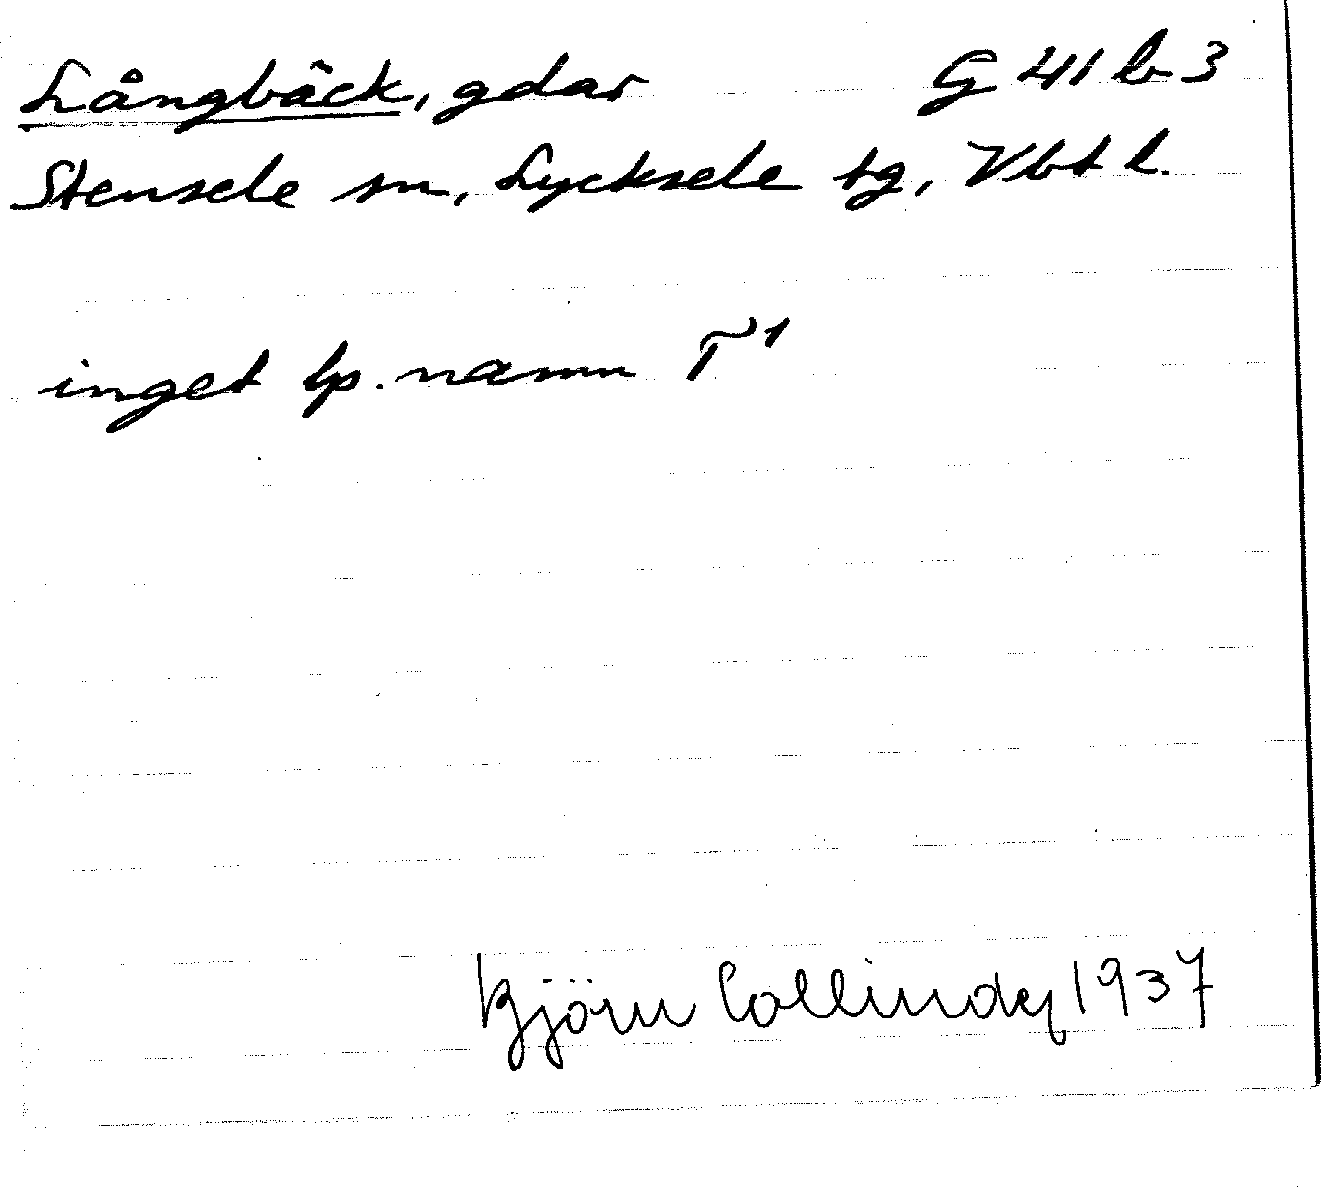 Långbäck, gdar G 41 b 3
Stensele sn, Lycksele tg, Vbt l.
inget lp. namn T¹
Björn Collinder 1937